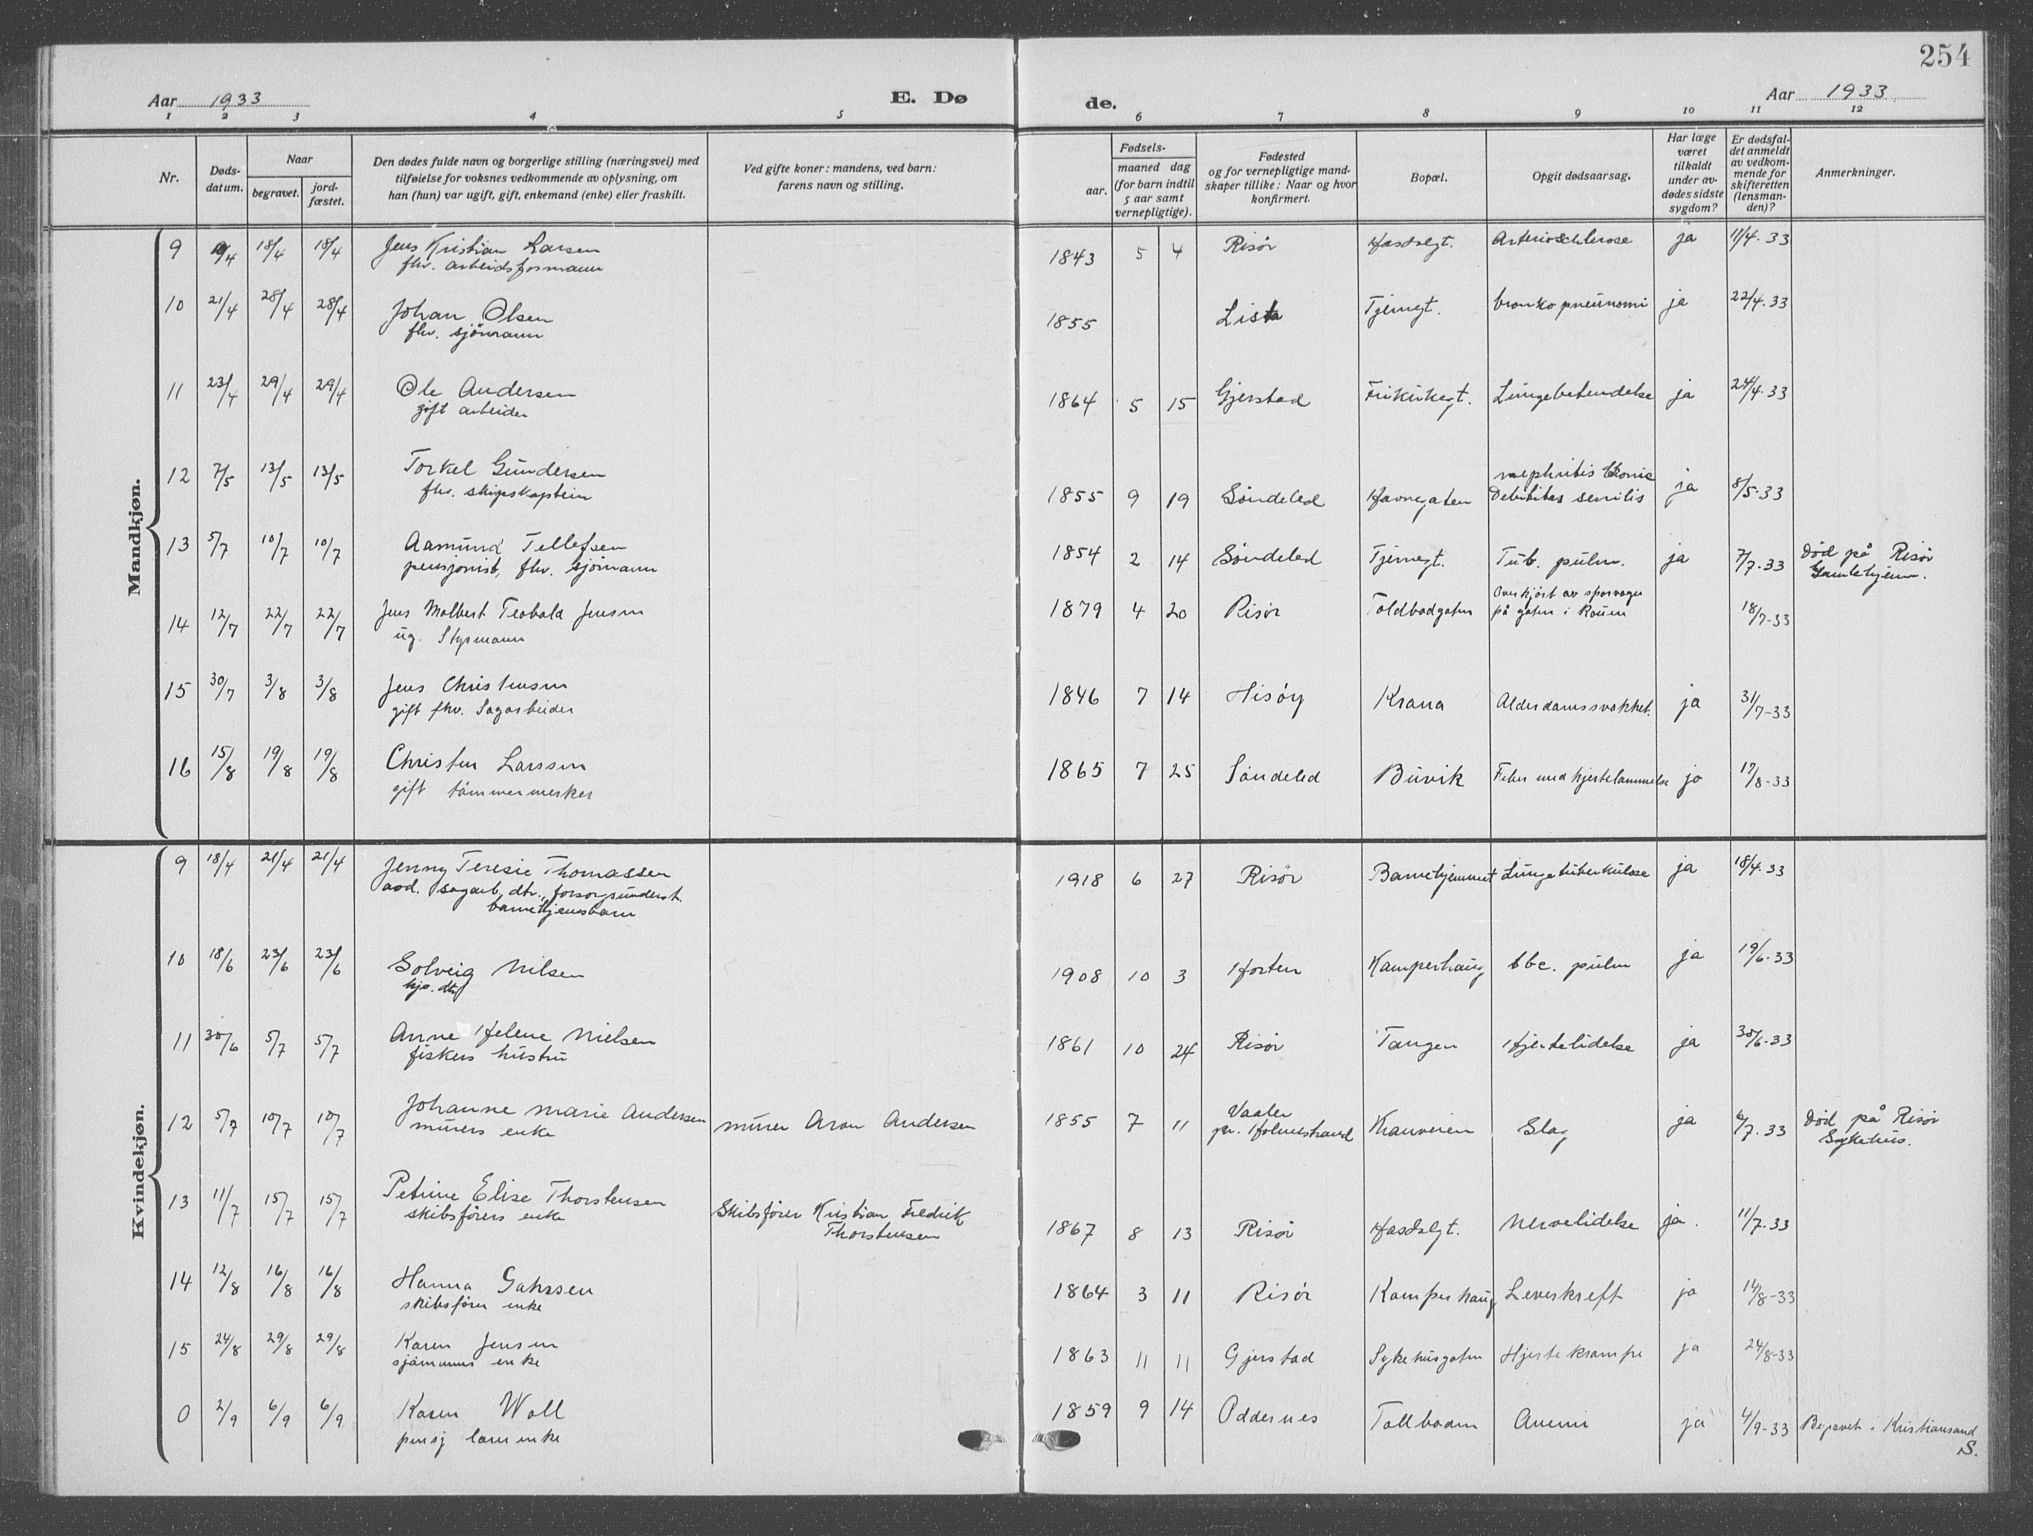 254
Aar 1933 E. Døde. Aar 1933
1 2 3 4 5 6 7 8 9 10 11 12
Nr.
Døds-datum.
Naar
begravet.
jord-fæstet.
Den dødes fulde navn og borgerlige stilling (næringsvei) med
tilføielse for voksnes vedkommende av oplysning, om
han (hun) var ugift, gift, enkemand (enke) eller fraskilt.
Ved gifte koner: mandens, ved barn:
farens navn og stilling.
Fødsels-
aar.
maaned dag
(for barn indtil
5 aar samt
vernepligtige).
Fødested
og for vernepligtige mand-
skaper tillike: Naar og hvor
konfirmert.
Bopæl.
Opgit dødsaarsag.
Har læge
været
tilkaldt
under av-
dødes sidste
sygdom?
Er dødsfal-
det anmeldt
av vedkom-
mende for
skifteretten
(lensman-
den)?
Anmerkninger.
Mandkjøn.
9 9/4 18/4 18/4 Jens Kristian Larsen 1843 5 4 Risør Hasdalgt. Arteriosclerose ja 11/4.33
fhv. arbeidsformann
10 21/4 28/4 28/4 Johan Olsen 1855 Lista Tjenngt. bronkopneunomi ja 22/4.33
fhv. sjömann
11 23/4 29/4 29/4 Ole Andersen 1864 5 15 Gjerstad Frikirkegt. Lungebetendelse ja 24/4.33
gift arbeider
12 7/5 13/5 13/5 Torkel Gundersen 1855 9 19 Søndeled Havnegaten nephritis Cronic ja 8/5.33
fhv. skipskaptein Debilitas senilis
13 5/7 10/7 10/7 Aamund Tellefsen 1854 2 14 Søndeled Tjenngt. Tub. pulm. ja 7/7.33 Død på Risør
pensjonist, fhv. sjömann Gamlehjem.
14 12/7 22/7 22/7 Jens Malbert Teobald Jensen 1879 4 20 Risør Toldbodgaten Overkjört av sporvogn 18/7-33
ug. Styrmann på gaten i Rouen
15 30/7 3/8 3/8 Jens Christensen 1846 7 14 Hisøy Krana Alderdomssvakhet. ja 31/7-33
gift fhv. Sagarbeider
16 15/8 19/8 19/8 Christen Larssen 1865 7 25 Søndeled Buvik Feber med hjertelammelse ja 17/8-33
gift tömmermerker
Kvindekjøn.
9 18/4 21/4 21/4 Jenny Teresie Thomassen 1918 6 27 Risør Barnehjemmet Lungetuberkulose ja 18/4.33
avd. sagarb. dtr., forsorgsunderst.
barnehjemsbarn
10 18/6 23/6 23/6 Solveig Nilsen 1908 10 3 Horten Kamperhaug tbc. pulm ja 19/6.33
hjv. dtr
11 30/6 5/7 5/7 Anne Helene Nielsen 1861 10 24 Risør Tangen Hjertelidelse ja 30/6.33
fiskers hustru
12 5/7 10/7 10/7 Johanne Marie Andersen murer Aron Andersen 1855 7 11 Vaaler Kranveien Slag ja 6/7.33 Død på Risør
murers enke pr. Holmestrand Sykehus.
13 11/7 15/7 15/7 Petrine Elise Thorstensen Skibsfører Kristian Fredrik 1867 8 13 Risør Hasdalgt. Nervelidelse ja. 11/7.33
skibsförers enke Thorstensen
14 12/8 16/8 16/8 Hanna Gahrsen 1864 3 11 Risör Kamperhaug Leverkreft ja 14/8-33
skibsförer enke
15 24/8 29/8 29/8 Karen Jensen 1863 11 11 Gjerstad Sykehusgaten Hjertekrampe ja 24/8-33
sjömanns enke
0 2/9 6/9 6/9 Karen Woll 1859 9 14 Oddernes Tollboden Anemi ja 4/9-33 Begravet i Kristiansand
pensj. enke S.